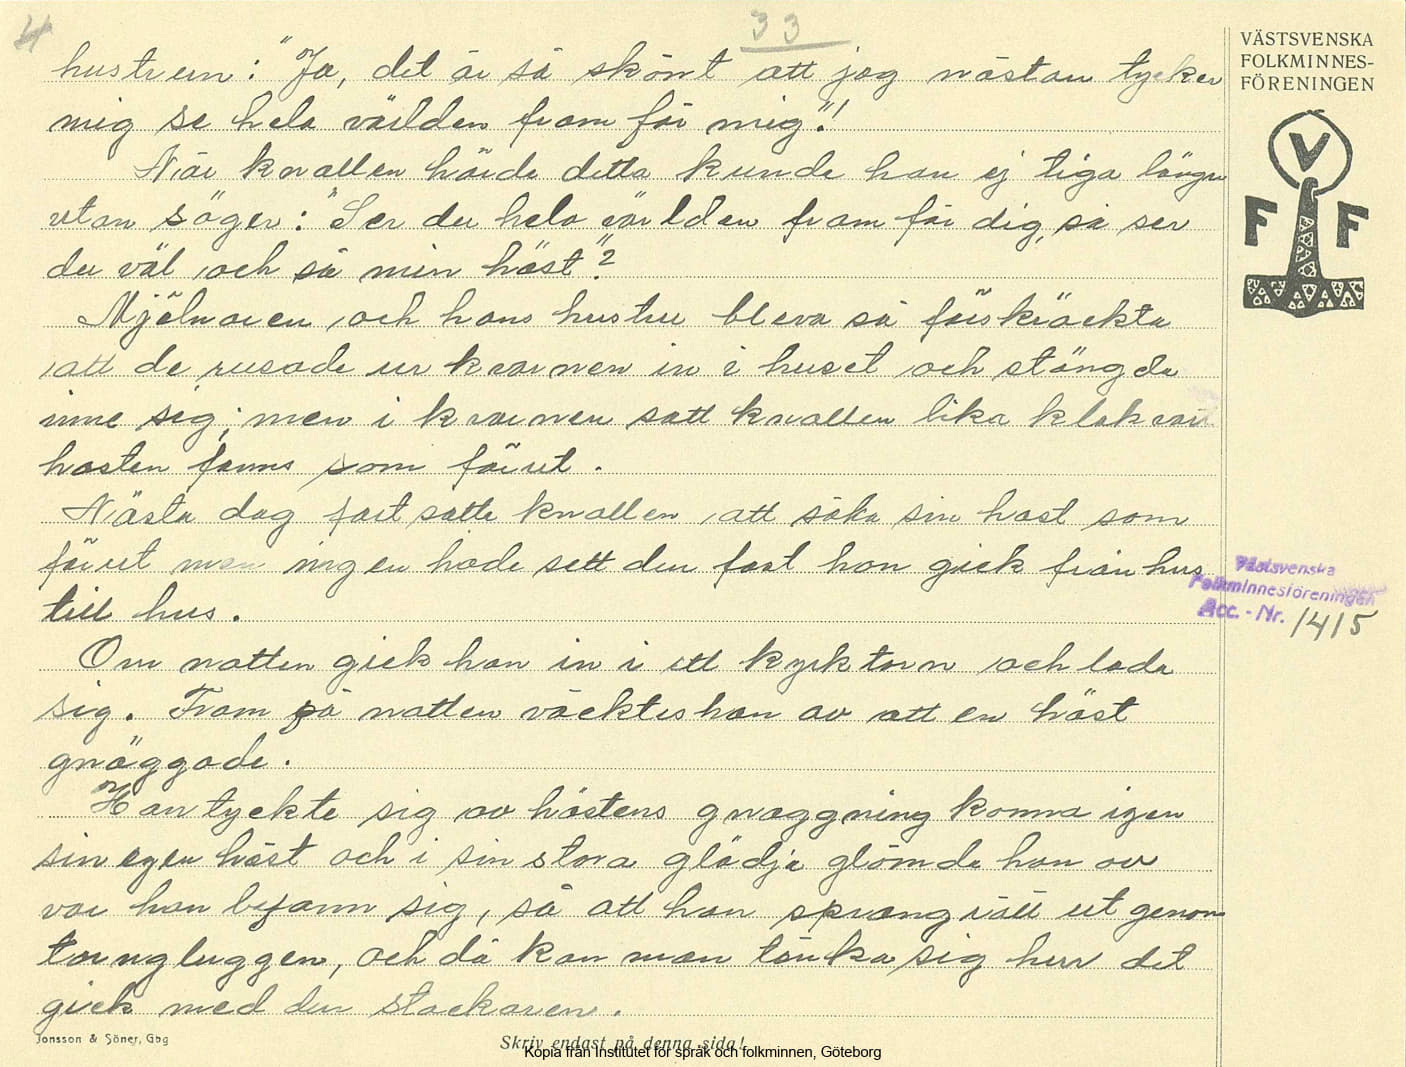 4
33
VÄSTSVENSKA
FOLKMINNES-
FÖRENINGEN
V
F F
hustrun: "Ja, det är så skönt att jag nästan tycker
mig se hela världen fram för mig"!
När knallen hörde detta kunde han ej tiga längre
utan säger: "Ser du hela världen fram för dig, så ser
du väl och så min häst"?
Mjölnaren och hans hustru bleva så förskräckta
att de rusade ur kvarnen in i huset och stängde
inne sig; men i kvarnen satt knallen lika klok var
hasten fanns som förut.
Nästa dag fortsatte knallen att söka sin hast som
förut men ingen hade sett den fast han gick från hus
till hus.
Västsvenska
Folkminnesföreningen
Acc. - Nr. 1415
Om natten gick han in i ett kyrktorn och lade
sig. Fram på natten väcktes han av att en häst
gnäggade.
Han tyckte sig av hästens gnaggning konna igen
sin egen häst och i sin stora glädje glömde han av
var han befann sig, så att han sprang rätt ut genom
torngluggen, och då kan man tänka sig hur det
gick med den stackaren.
Jonsson & Söner, Gbg
Skriv endast på denna sida!
Kopia från Institutet för språk och folkminnen, Göteborg